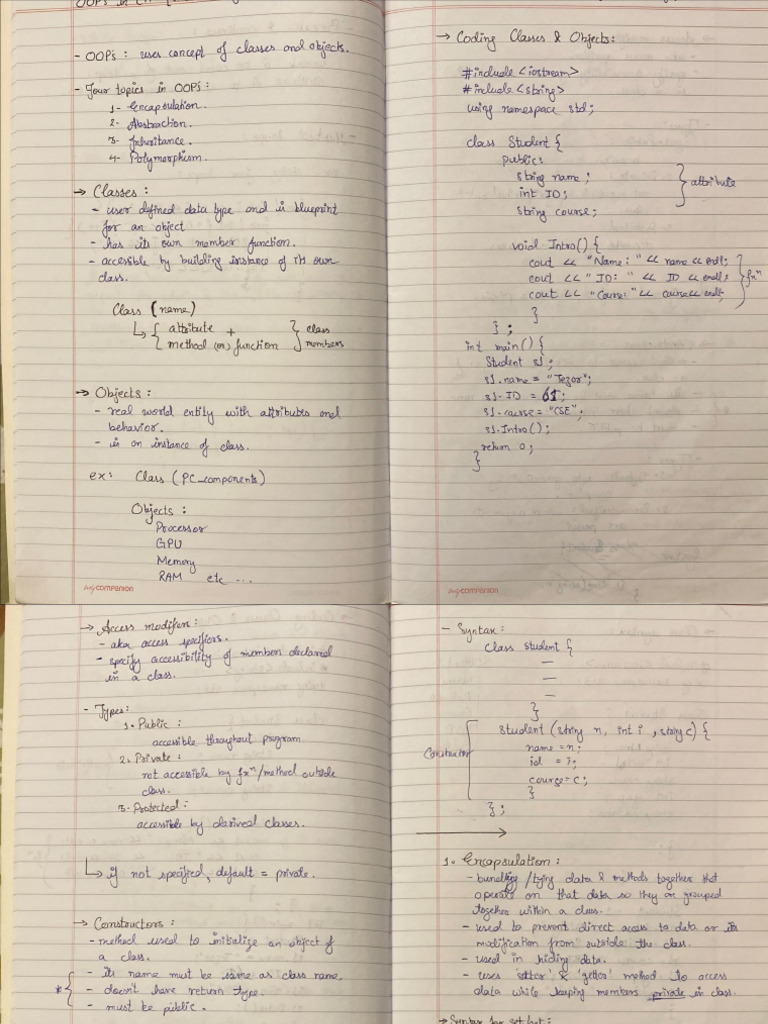 OOPs in C++
- OOPs: uses concept of classes and objects.
- Four topics in OOPs:
1- Encapsulation.
2- Abstraction.
3- Inheritance.
4- Polymorphism.
→ Classes:
- user defined data type and is blueprint
for an object
- has its own member function.
- accessible by building instance of its own
class.
Class (name)
↳ { attribute + } class
{ method (or) function } members
→ Objects:
- real world entity with attributes and
behavior.
- is an instance of class.
ex: Class (PC_components)
Objects:
Processor
GPU
Memory
RAM etc ...
mycompanion
→ Coding Classes & Objects:
#include <iostream>
#include <string>
using namespace std;
class Student {
public:
string name;
int ID; } attribute
string course;
void Intro() {
cout << "Name: " << name << endl;
cout << "ID: " << ID << endl; } fxⁿ
cout << "Course:" << course << endl;
}
};
int main() {
Student s1;
s1.name = "Tezor";
s1.ID = 61;
s1.course = "CSE";
s1.Intro();
return 0;
}
mycompanion
→ Access modifiers:
- aka access specifiers.
- specify accessibility of members declared
in a class.
- Types:
1. Public:
accessible throughout program
2. Private:
not accessible by fxⁿ/method outside
class.
3. Protected:
accessible by derived classes.
↳ if not specified, default = private.
→ Constructors:
- method used to initialize an object of
a class.
- its name must be same as class name.
* { - doesn't have return type.
- must be public.
- Syntax:
class student {
—
—
—
}
student (string n, int i, string c) {
name = n;
Constructor id = i;
course = c;
}
};
1. Encapsulation:
- bundling/tying data & methods together that
operate on that data so they are grouped
together within a class.
- used to prevent direct access to data or its
modification from outside the class.
- used in hiding data.
- uses 'setter' & 'getter' method to access
data while keeping members private in class.
→ Syntax for set/get: